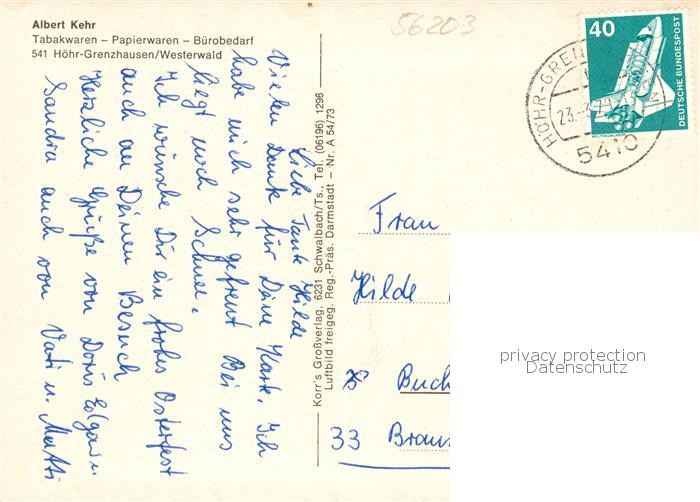 Albert Kehr
Tabakwaren – Papierwaren – Bürobedarf
541 Höhr-Grenzhausen/Westerwald
56203
40
DEUTSCHE BUNDESPOST
WELTRAUMLABOR
HÖHR-GREN
23.
5410
Liebe Tante Hilde
Vielen Dank für Deine Karte. Ich
habe mich sehr gefreut Bei uns
liegt noch Schnee.
Ich wünsche Dir ein frohes Osterfest
auch an Deinen Besuch
Herzliche Grüße von Doris Edgar u.
Sandra auch von Vati u. Mutti
Korr's Großverlag, 6231 Schwalbach/Ts., Tel. (06196) 1296
Luftbild freigeg. Reg.-Präs. Darmstadt – Nr. A 54/73
Frau
Hilde
Buch
33 Braus
privacy protection
Datenschutz